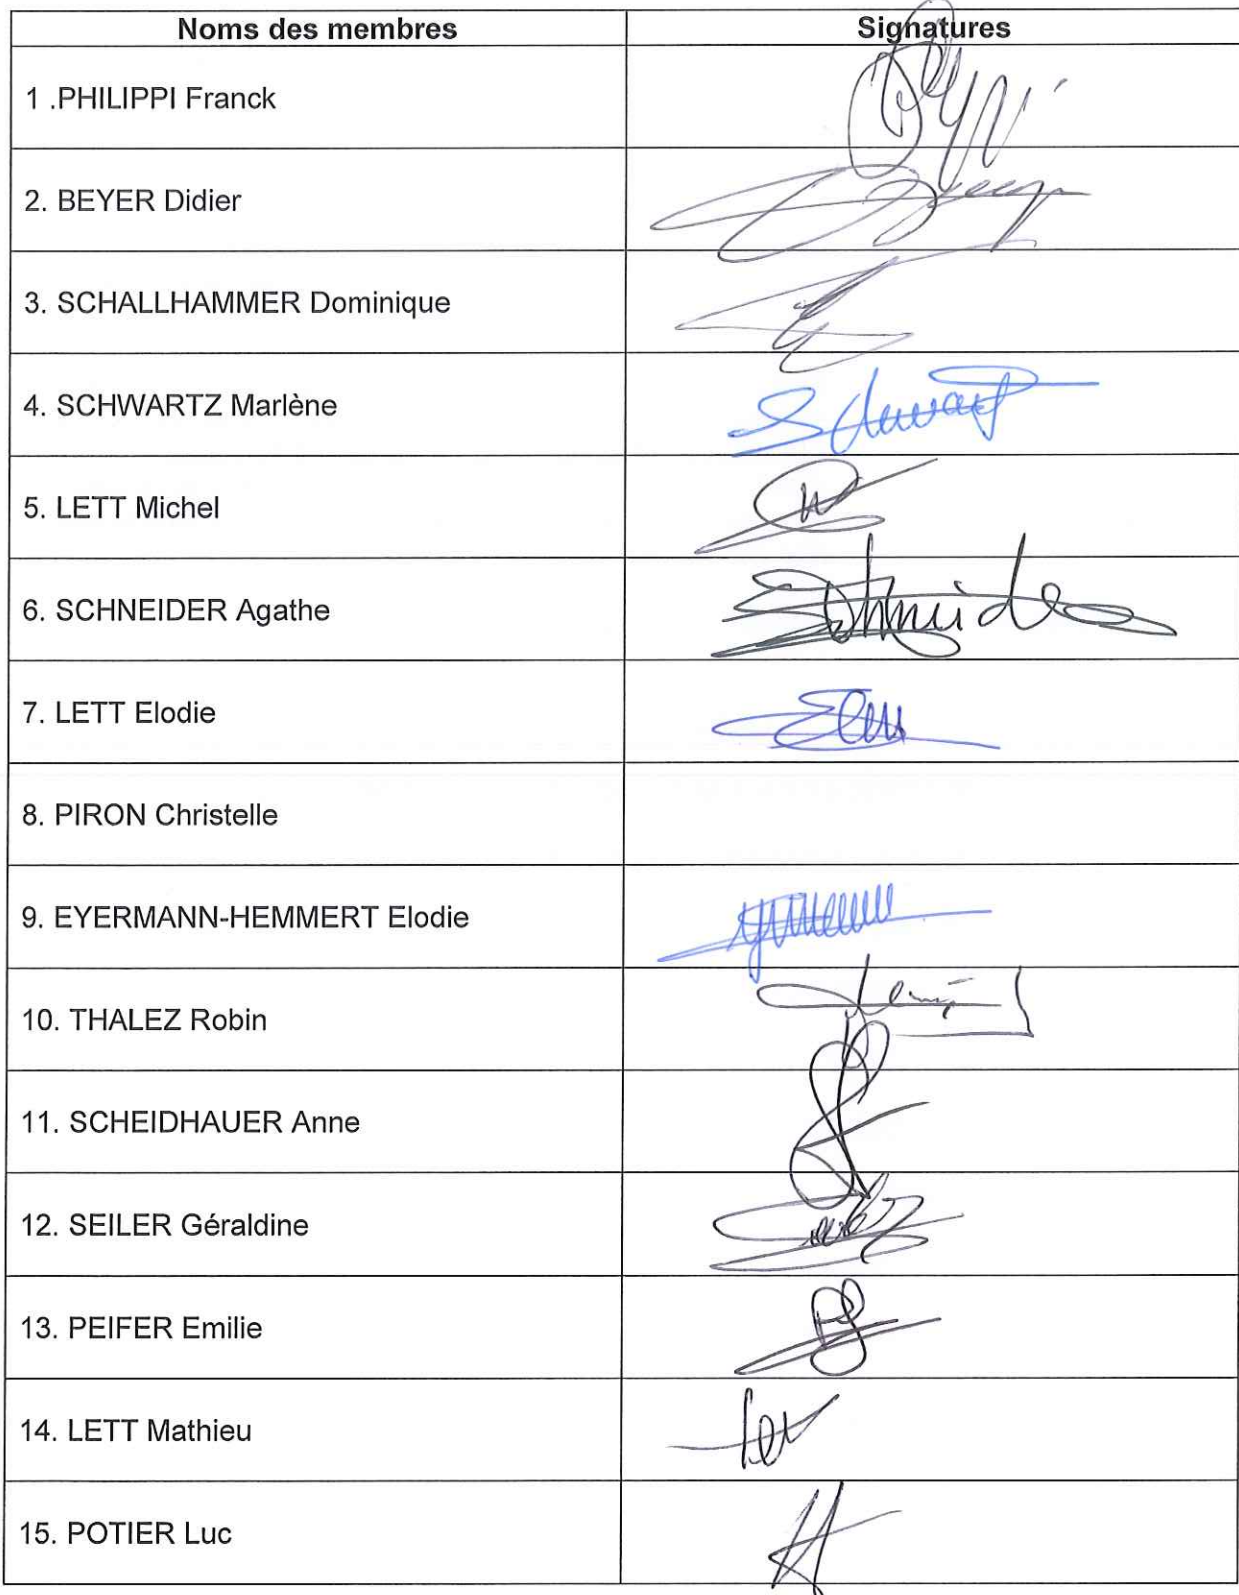 Noms des membres
Signatures
1 .PHILIPPI Franck
2. BEYER Didier
3. SCHALLHAMMER Dominique
4. SCHWARTZ Marlène
Schwartz
5. LETT Michel
6. SCHNEIDER Agathe
Schneider
7. LETT Elodie
8. PIRON Christelle
9. EYERMANN-HEMMERT Elodie
10. THALEZ Robin
11. SCHEIDHAUER Anne
12. SEILER Géraldine
13. PEIFER Emilie
14. LETT Mathieu
15. POTIER Luc